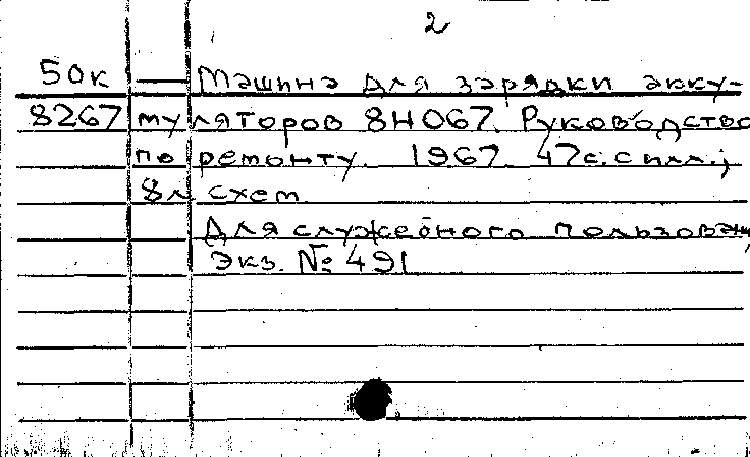 2
50к — Машина для зарядки акку-
8267 муляторов 8Н067. Руководство
по ремонту. 1967. 47с. с илл.;
8л схем.
Для служебного пользован
Экз. № 491